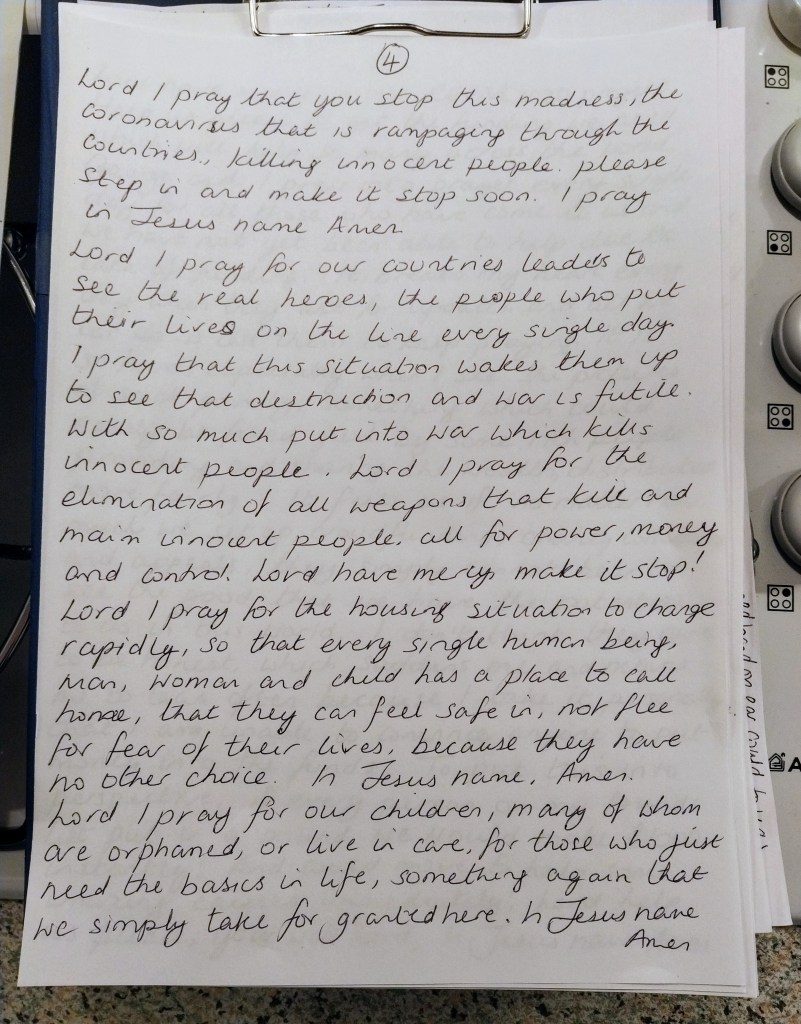 4
Lord I pray that you stop this madness, the
coronavirus that is rampaging through the
countries, killing innocent people. please
step in and make it stop soon. I pray
in Jesus name Amen
Lord I pray for our countries leaders to
see the real heroes, the people who put
their lives on the line every single day.
I pray that this situation wakes them up
to see that destruction and war is futile.
With so much put into war which kills
innocent people. Lord I pray for the
elimination of all weapons that kill and
maim innocent people, all for power, money
and control. Lord have mercy make it stop!
Lord I pray for the housing situation to change
rapidly, so that every single human being,
man, woman and child has a place to call
home, that they can feel safe in, not flee
for fear of their lives, because they have
no other choice. In Jesus name, Amen.
Lord I pray for our children, many of whom
are orphaned, or live in care, for those who just
need the basics in life, something again that
we simply take for granted here. In Jesus name
Amen
A